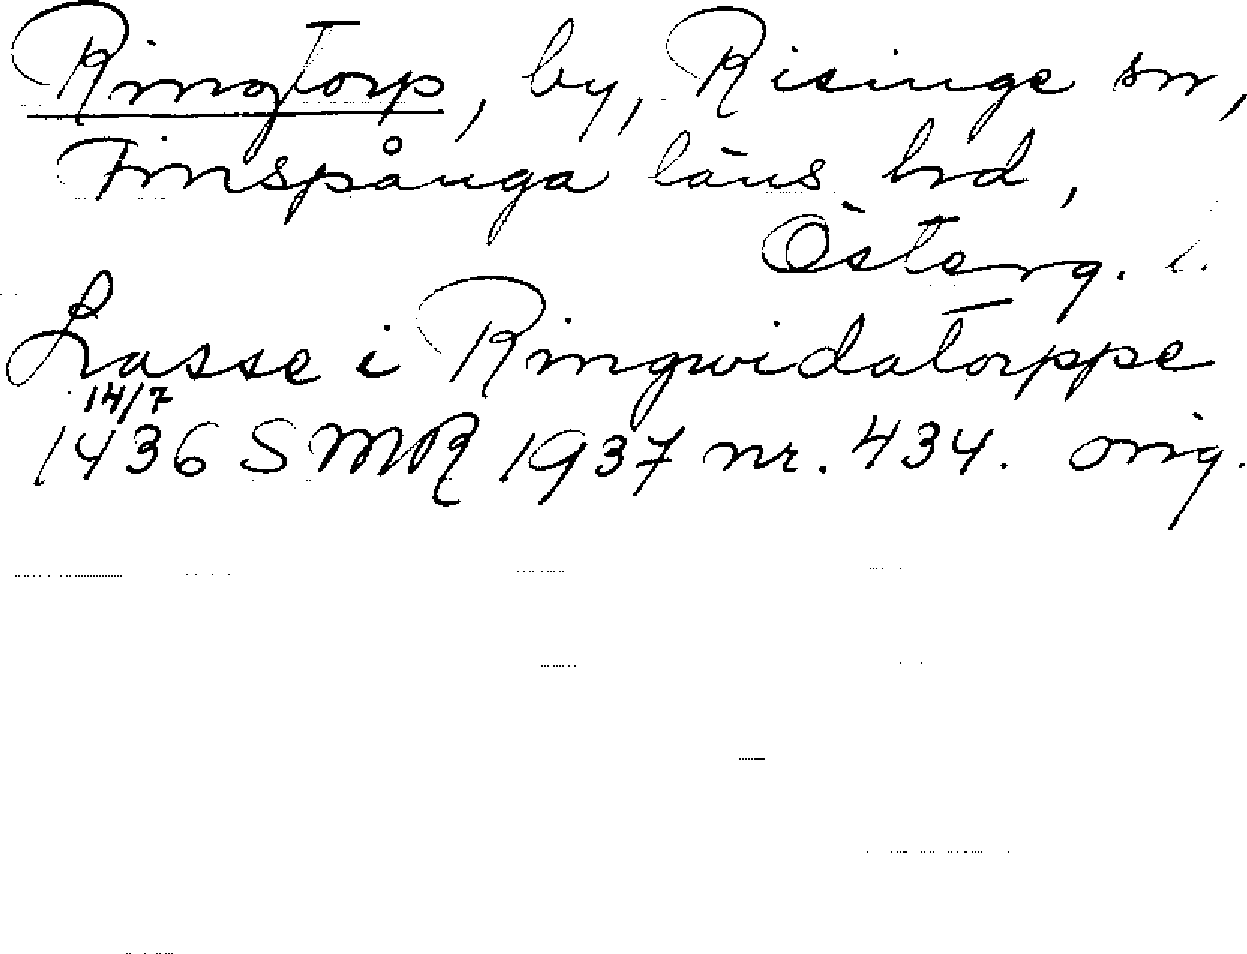 Ringtorp, by, Risinge sn,
Finspånga läns hd,
Österg. l.
Lasse i Ringwidatorppe
14/7
1436 SMR 1937 nr. 434. orig.